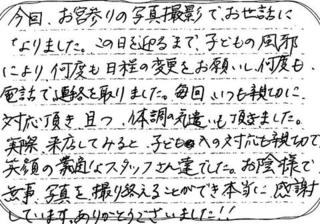 今回、お宮参りの写真撮影でお世話に
なりました。この日を迎るまで、子どもの風邪
により、何度も日程の変更をお願いし、何度も、
電話で連絡を取りました。毎回、いつも親切に、
対応頂き、且つ、体調の気遣いも頂きました。
実際、来店してみると、子どもへの対応も親切で、
笑顔の素適なスタッフさん達でした。お陰様で
無事、写真を撮り終えることができ本当に感謝
しています。ありがとうございました!!